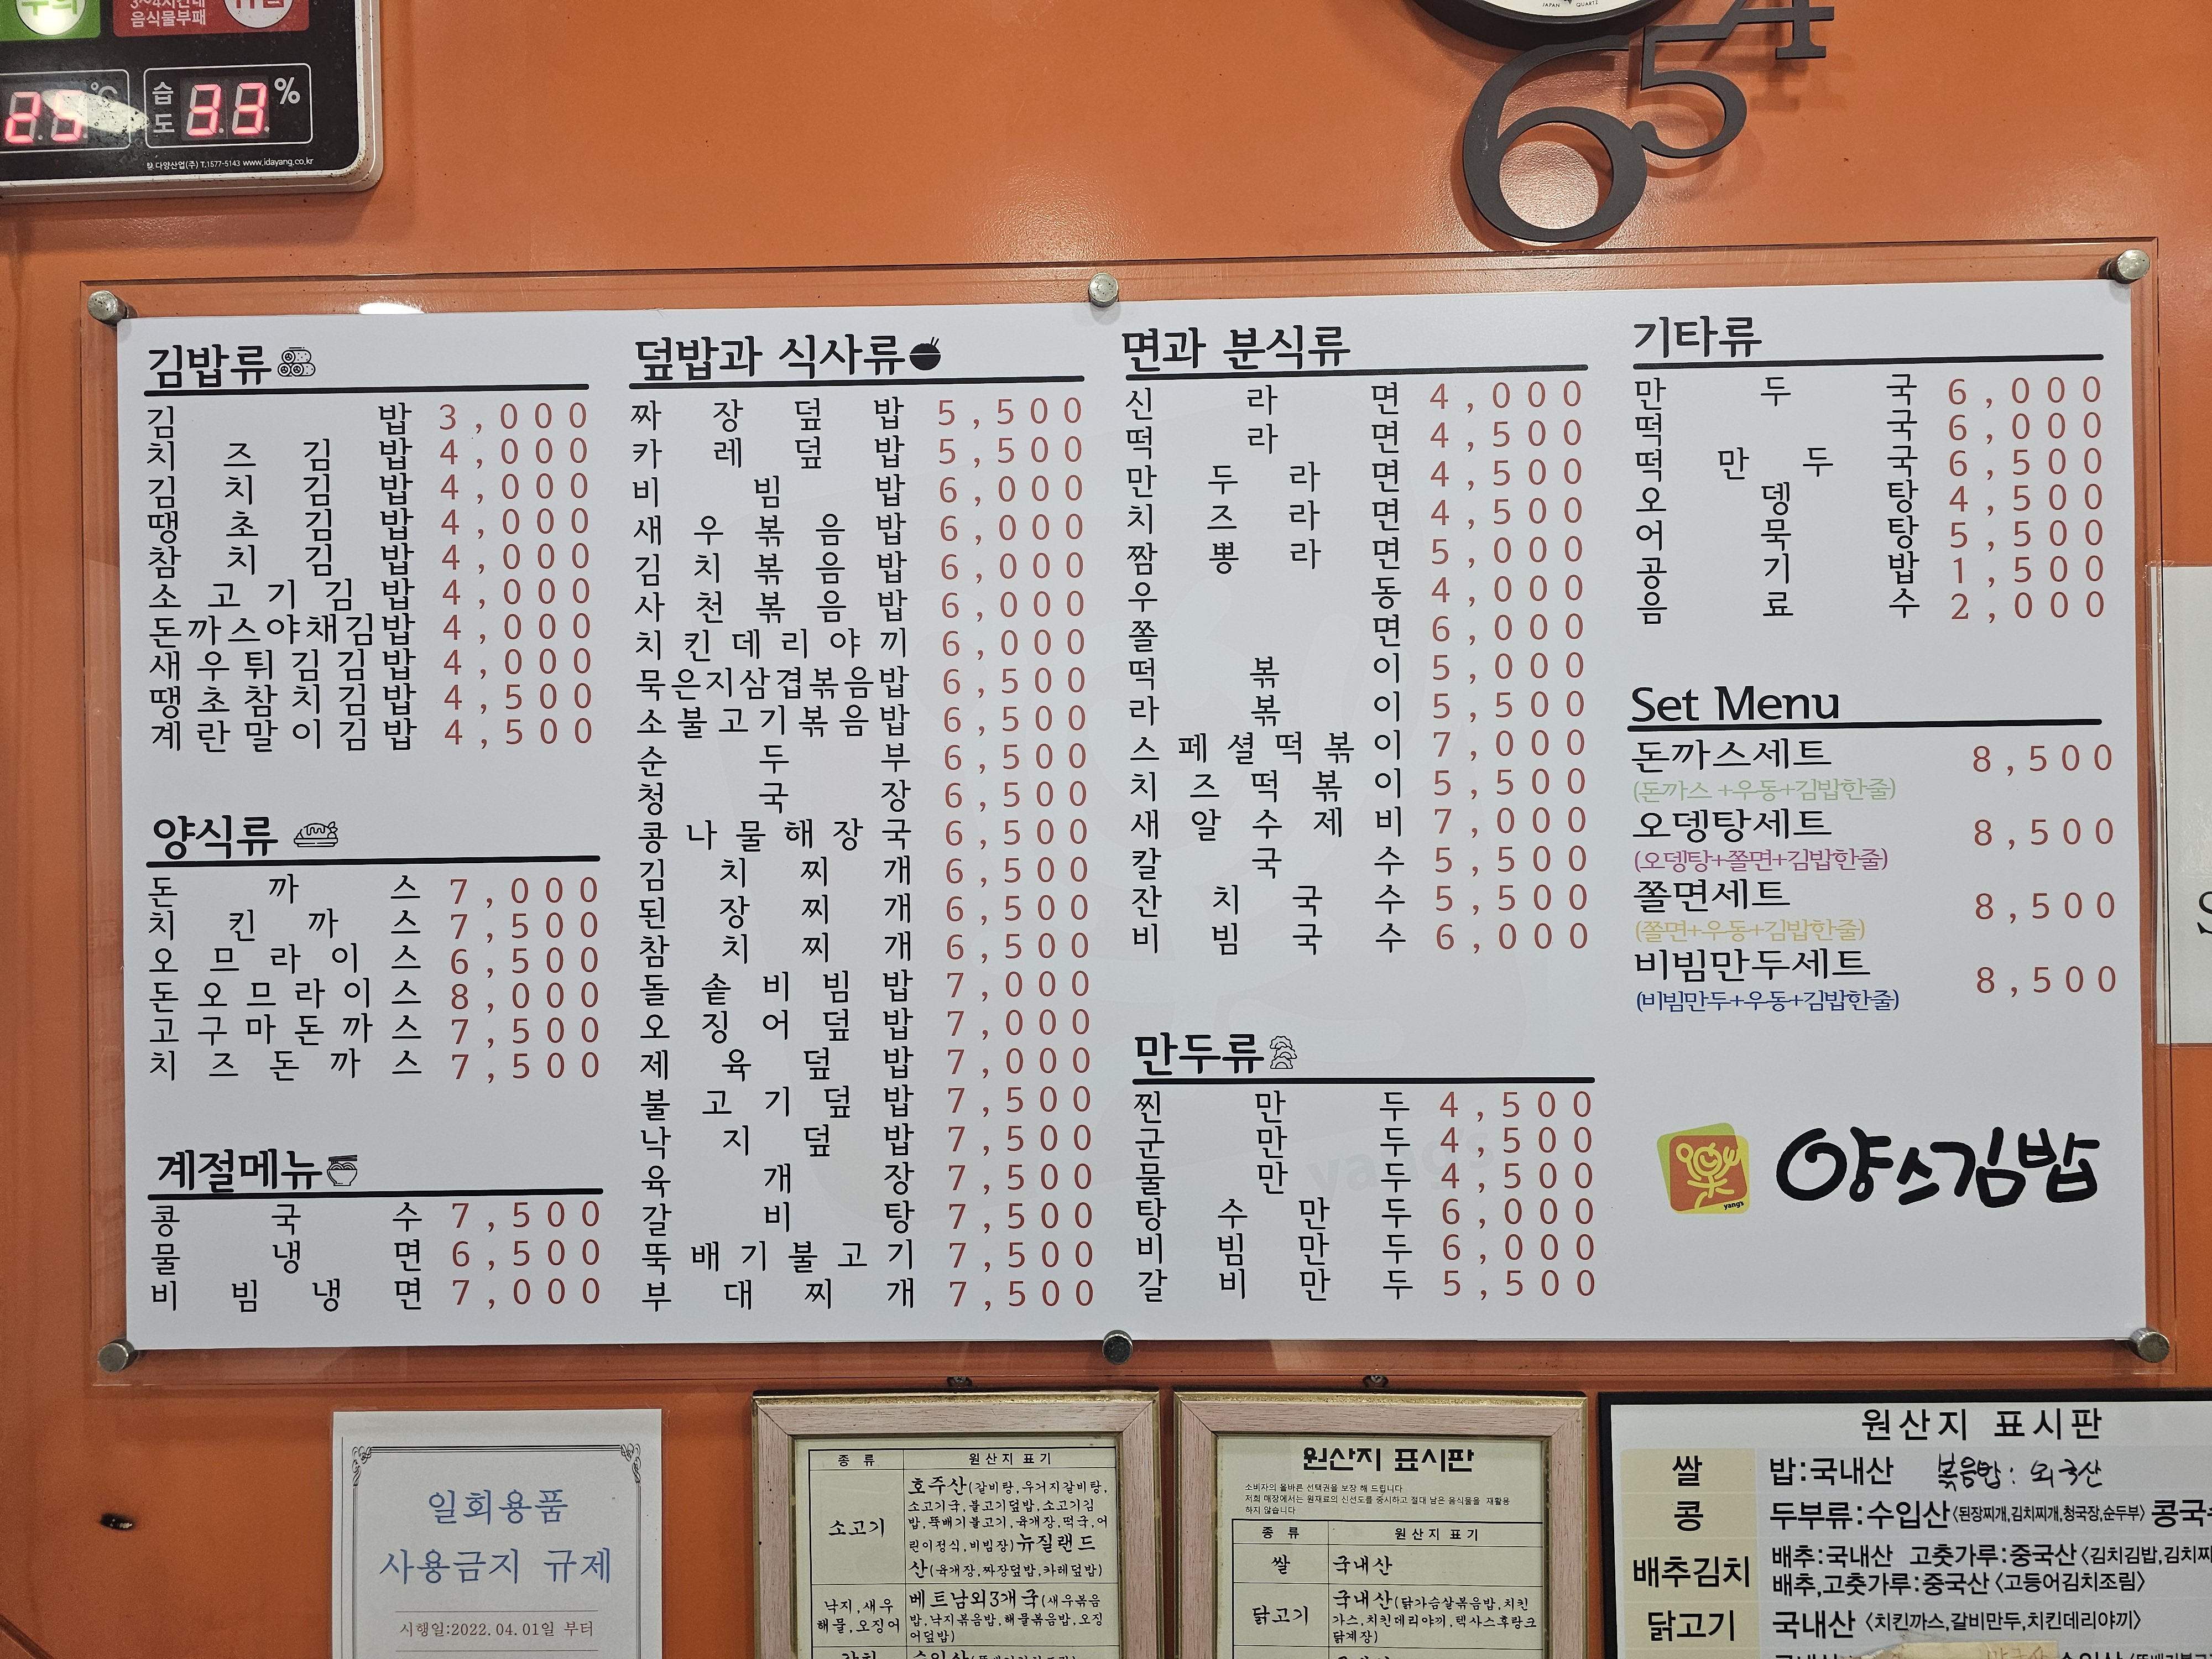 3~4시간내
음식물부패
25 ℃
습도 33 %
다양산업(주) T.1577-5143 www.idayang.co.kr
JAPAN QUARTZ
4
5
6
김밥류
김밥 3,000
치즈김밥 4,000
김치김밥 4,000
땡초김밥 4,000
참치김밥 4,000
소고기김밥 4,000
돈까스야채김밥 4,000
새우튀김김밥 4,000
땡초참치김밥 4,500
계란말이김밥 4,500
양식류
돈까스 7,000
치킨까스 7,500
오므라이스 6,500
돈오므라이스 8,000
고구마돈까스 7,500
치즈돈까스 7,500
계절메뉴
콩국수 7,500
물냉면 6,500
비빔냉면 7,000
덮밥과 식사류
짜장덮밥 5,500
카레덮밥 5,500
비빔밥 6,000
새우볶음밥 6,000
김치볶음밥 6,000
사천볶음밥 6,000
치킨데리야끼 6,000
묵은지삼겹볶음밥 6,500
소불고기볶음밥 6,500
순두부 6,500
청국장 6,500
콩나물해장국 6,500
김치찌개 6,500
된장찌개 6,500
참치찌개 6,500
돌솥비빔밥 7,000
오징어덮밥 7,000
제육덮밥 7,000
불고기덮밥 7,500
낙지덮밥 7,500
육개장 7,500
갈비탕 7,500
뚝배기불고기 7,500
부대찌개 7,500
면과 분식류
신라면 4,000
떡라면 4,500
만두라면 4,500
치즈라면 4,500
짬뽕라면 5,000
우동 4,000
쫄면 6,000
떡볶이 5,000
라볶이 5,500
스페셜떡볶이 7,000
치즈떡볶이 5,500
새알수제비 7,000
칼국수 5,500
잔치국수 5,500
비빔국수 6,000
만두류
찐만두 4,500
군만두 4,500
물만두 4,500
탕수만두 6,000
비빔만두 6,000
갈비만두 5,500
기타류
만두국 6,000
떡국 6,000
떡만두국 6,500
오뎅탕 4,500
어묵탕 5,500
공기밥 1,500
음료수 2,000
Set Menu
돈까스세트 8,500
(돈까스 +우동+김밥한줄)
오뎅탕세트 8,500
(오뎅탕+쫄면+김밥한줄)
쫄면세트 8,500
(쫄면+우동+김밥한줄)
비빔만두세트 8,500
(비빔만두+우동+김밥한줄)
yang's
양스김밥
일회용품
사용금지 규제
시행일:2022.04.01일 부터
종 류 원산지 표기
소고기
호주산(갈비탕,우거지갈비탕,
소고기국,불고기덮밥,소고기김
밥,뚝배기불고기,육개장,떡국,어
린이정식,비빔장)뉴질랜드
산(육개장,짜장덮밥,카레덮밥)
낙지,새우
해물,오징어
베트남외3개국(새우볶음
밥,낙지볶음밥,해물볶음밥,오징
어덮밥)
원산지 표시판
소비자의 올바른 선택권을 보장 해 드립니다
저희 매장에서는 원재료의 신선도를 중시하고 절대 남은 음식물을 재활용
하지 않습니다
종 류 원산지 표기
쌀 국내산
닭고기
국내산(닭가슴살볶음밥,치킨
가스,치킨데리야끼,텍사스후랑크
닭계장)
원산지 표시판
쌀 밥:국내산 볶음밥: 외국산
콩 두부류:수입산<된장찌개,김치찌개,청국장,순두부> 콩국
배추김치
배추:국내산 고춧가루:중국산<김치김밥,김치찌
배추,고춧가루:중국산<고등어김치조림>
닭고기 국내산 <치킨까스,갈비만두,치킨데리야끼>